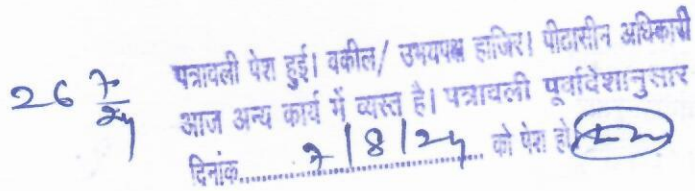 26 7/24
पत्रावली पेश हुई। वकील/ उभयपक्ष हाजिर। पीठासीन अधिकारी
आज अन्य कार्य में व्यस्त है। पत्रावली पूर्वादेशानुसार
दिनांक 7/8/24 को पेश हो